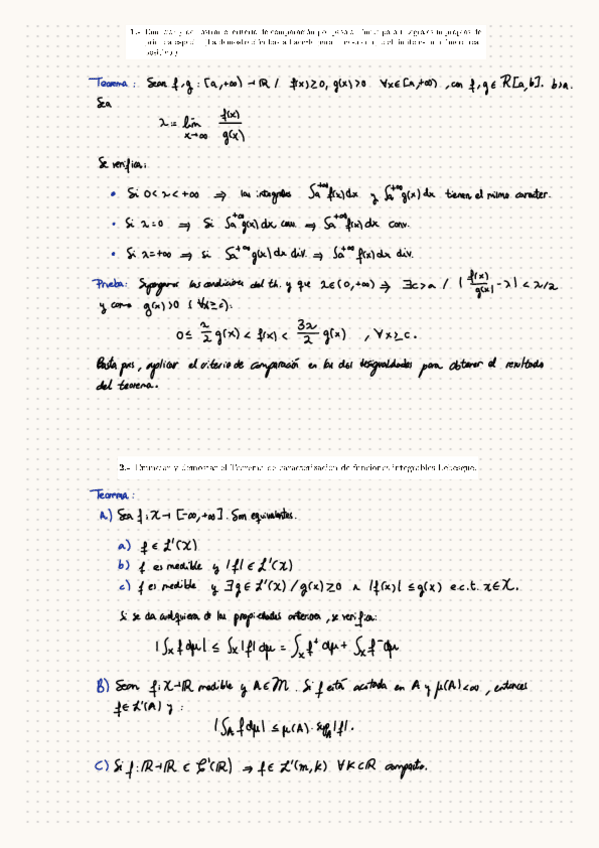 1.- Enunciar y demostrar el criterio de comparación por paso al límite para integrales impropias de
Teorema: Sean f,g : [a,+∞) → ℝ / f(x)≥0, g(x)>0 ∀x∈[a,+∞), con f,g ∈ R[a,b]. b>a.
Sea
λ = lim x→∞ f(x)/g(x)
Se verifica:
• Si 0<λ<+∞ ⇒ las integrales ∫a^+∞ f(x)dx y ∫a^+∞ g(x)dx tienen el mismo caracter.
• Si λ=0 ⇒ Si ∫a^+∞ g(x)dx conv. ⇒ ∫a^+∞ f(x)dx conv.
• Si λ=+∞ ⇒ si ∫a^+∞ g(x)dx div. ⇒ ∫a^+∞ f(x)dx div.
Prueba: Supongamos las condiciones del th. y que λ∈(0,+∞) ⇒ ∃c>a / |f(x)/g(x) - λ| < λ/2
y como g(x)>0 (∀x≥c):
0≤ λ/2 g(x) < f(x) < 3λ/2 g(x) , ∀x≥c.
Basta pues, aplicar el criterio de comparación en las dos desigualdades para obtener el resultado
del teorema.
2.- Enunciar y demostrar el Teorema de caracterización de funciones integrables Lebesgue.
Teorema:
A) Sea f: X → [-∞,+∞]. Son equivalentes.
a) f ∈ L¹(X)
b) f es medible y |f| ∈ L¹(X)
c) f es medible y ∃g∈ L¹(X) / g(x)≥0 ∧ |f(x)| ≤ g(x) e.c.t. x∈X.
Si se da cualquiera de las propiedades anteriores, se verifica:
|∫x f dμ| ≤ ∫x |f| dμ = ∫x f⁺ dμ + ∫x f⁻ dμ
B) Sean f: X→ℝ medible y A∈M. Si f está acotada en A y μ(A)<∞, entonces
f∈ L¹(A) y :
|∫A f dμ| ≤ μ(A)· supA |f|.
C) Si f: ℝ→ℝ ∈ C(ℝ) ⇒ f∈ L¹(m,k) ∀K⊂ℝ compacto.